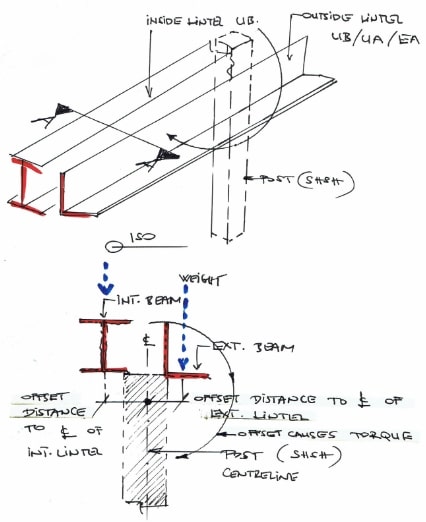 INSIDE LINTEL UB.
OUTSIDE LINTEL
UB/UA/EA
POST (SHSH)
ISO
WEIGHT
INT. BEAM
℄
EXT. BEAM
OFFSET
DISTANCE
TO ℄ OF
INT. LINTEL
OFFSET DISTANCE TO ℄ OF
EXT. LINTEL
OFFSET CAUSES TORQUE
POST (SHSH)
CENTRELINE